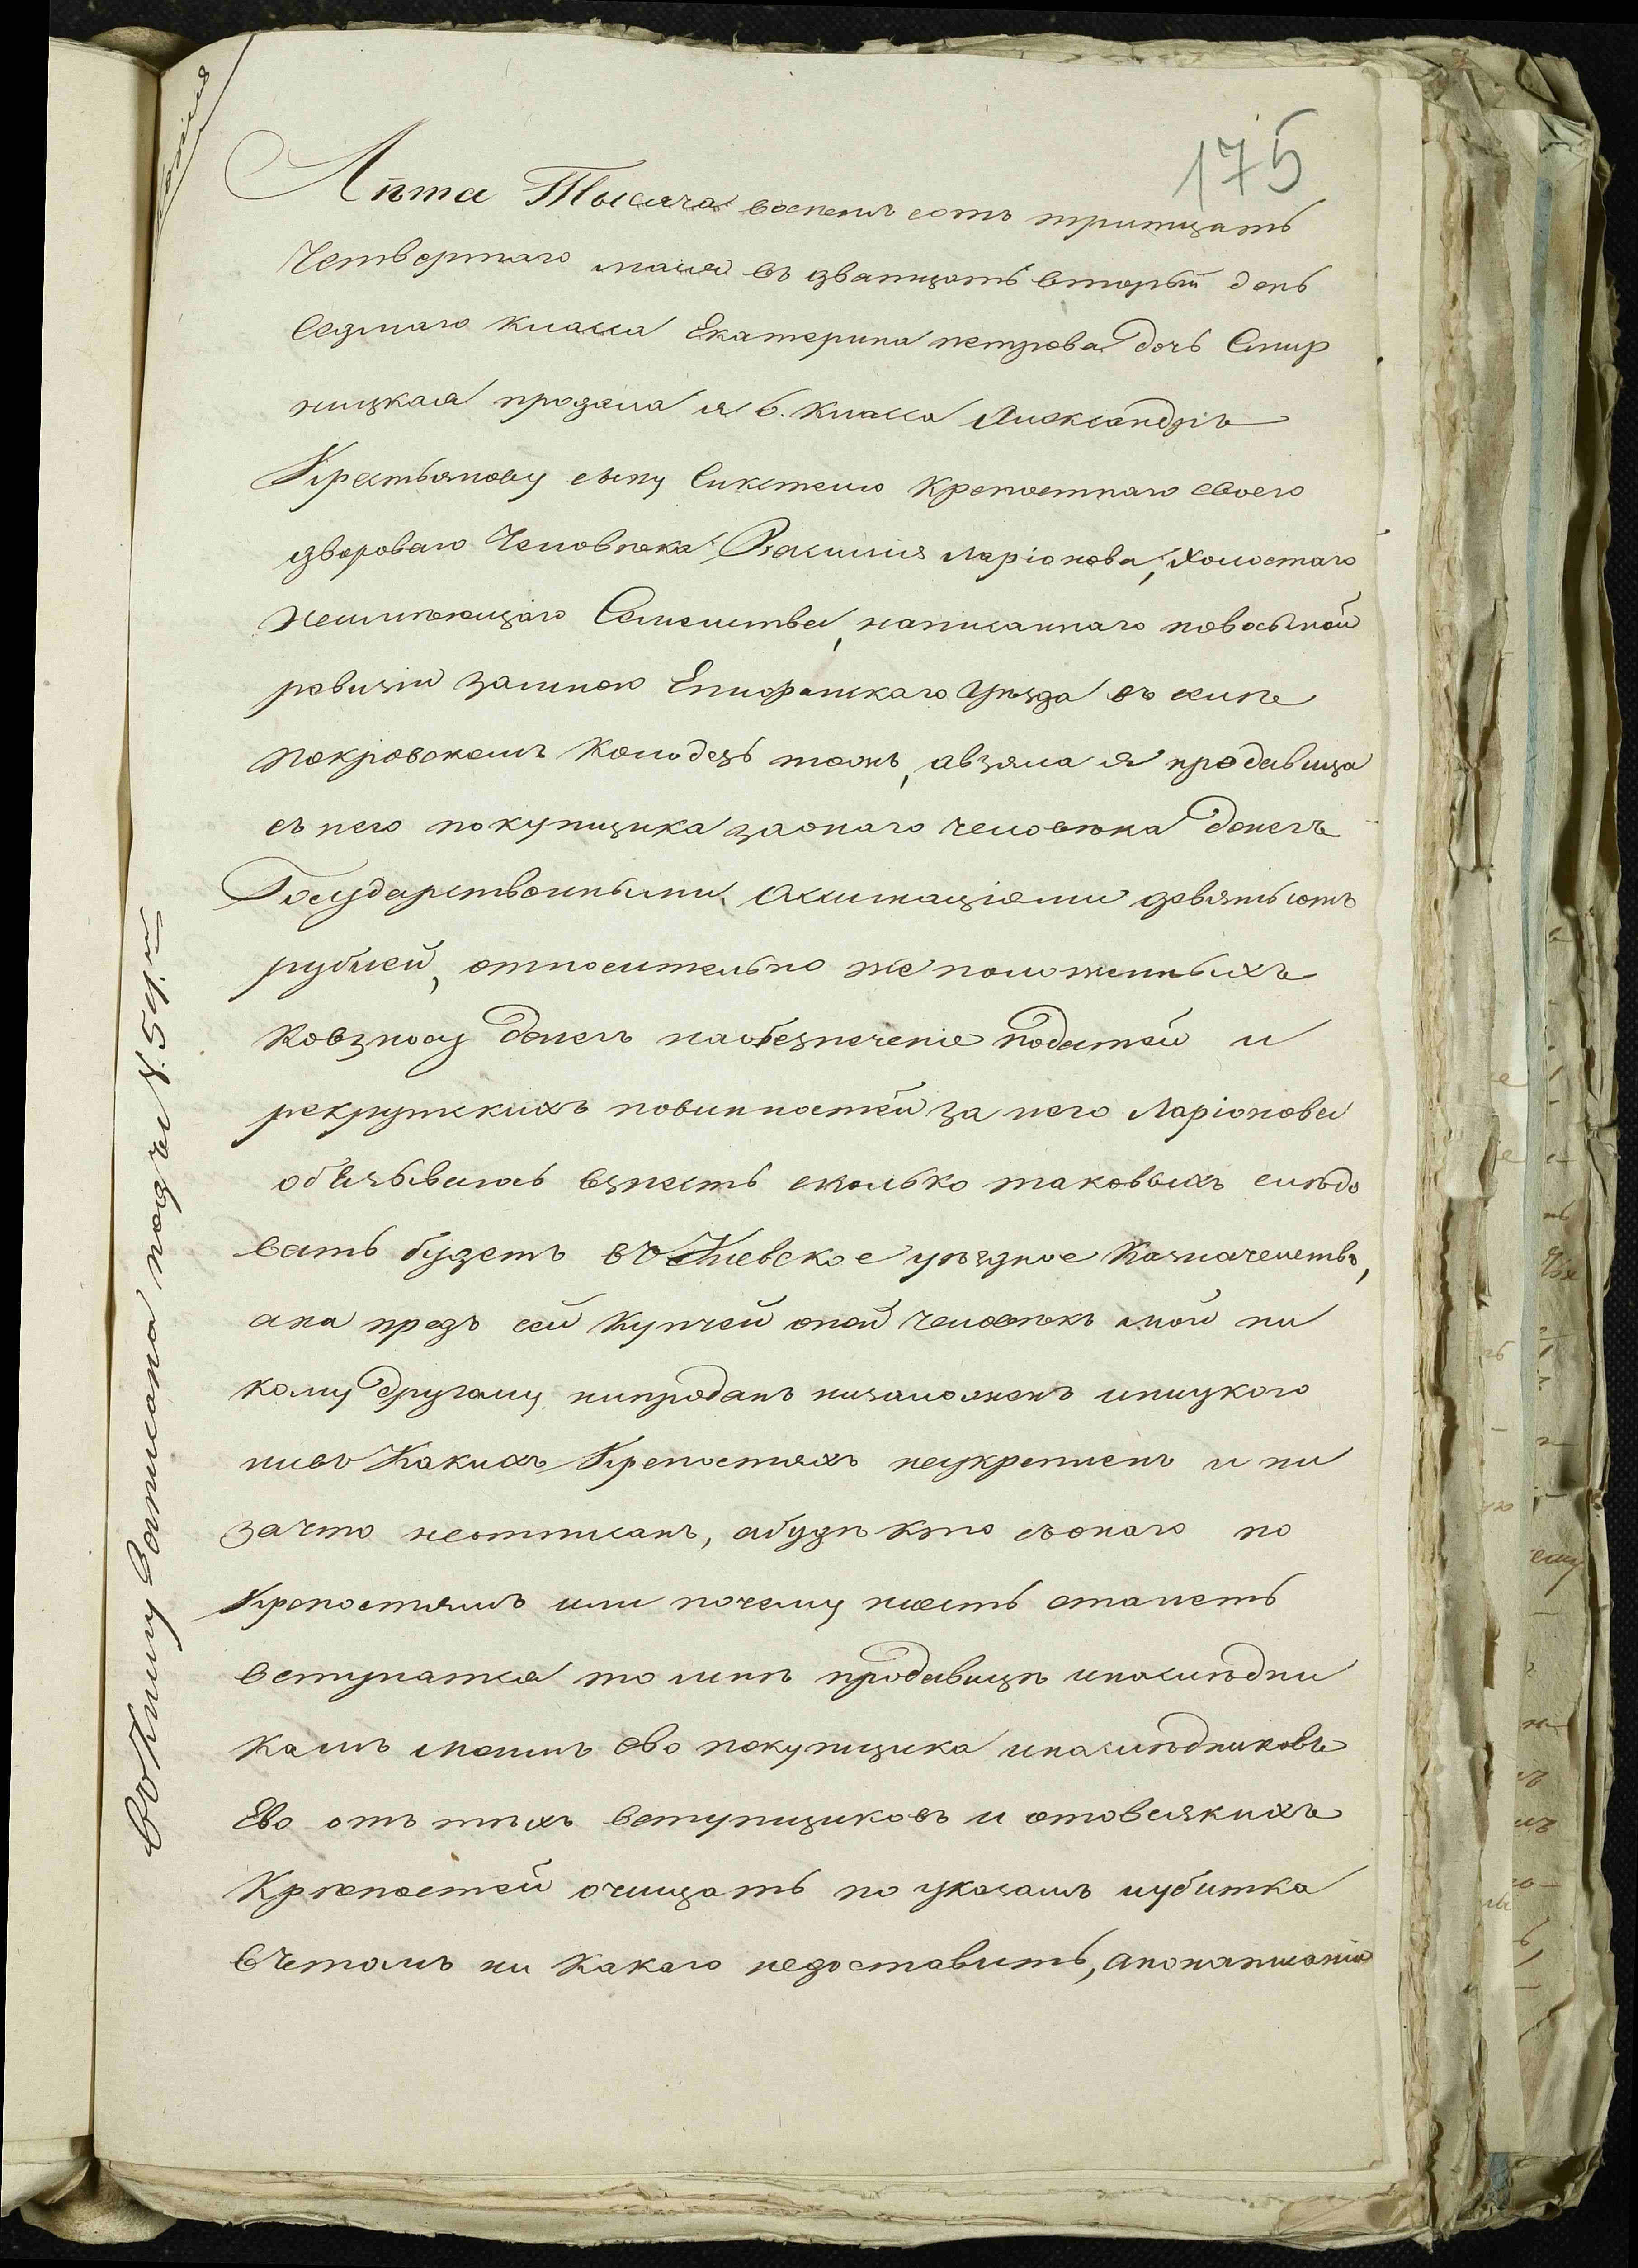 175
Лѣта Тысяча восемь сотъ тритцать
Четвертаго маия въ дватцать вторый день
Седмаго Класса Екатерина петрова дочь Смир
ницкая продала я 6. Класса Александръ
Крестьянову сыну Сикстелю Крепостнаго своего
двороваго Человѣка Василия Ларіонова, Холостаго
неимѣющаго Семейства, написаннаго повосьмой
ревизіи замною Епифанскаго Уѣзда въ селѣ
покровскомъ Колодезь тожъ, авзяла я продавица
съ него покупщика заонаго человѣка денегъ
Государственными Ассигнаціями девятьсотъ
рублей, относительно же положенныхъ
Ковзносу денегъ наобезпеченіе податей и
рекрутскихъ повинностей за него Ларіонова
обязываюсь взнесть сколько таковыхъ слѣдо
вать будетъ въ Киевское уѣздное Казначейство,
ана предъ сей Купчей оной человѣкъ мой ни
кому другому нипроданъ низаложенъ иниукого
нивъ Какихъ Крепостяхъ неукрепленъ и ни
зачто неотписанъ, абуде кто съонаго по
Крепостямъ или почему нибыть станетъ
вступатся то мнѣ продавицѣ инаследни
камъ моимъ Ево покупщика инаследниковъ
Ево отъ тѣхъ вступщиковъ и отовсякихъ
Крѣпостей очищать по указамъ иубитка
вЧетомъ ни Какаго недоставить, апонаписанія
въ Книгу Записана подъ № 54.й